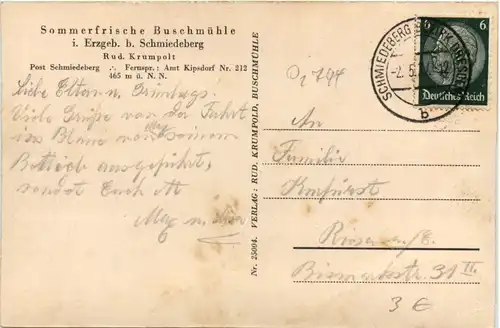 Sommerfrische Buschmühle
i. Erzgeb. b. Schmiedeberg
Rud. Krumpolt
Post Schmiedeberg ∴ Fernspr.: Amt Kipsdorf Nr. 212
465 m ü. N. N.
Liebe Eltern u.
Viele Grüße von der Fahrt
ins Blaue von
Betrieb ausgeführt,
sendet Euch
Nr. 25094. VERLAG: RUD. KRUMPOLD, BUSCHMÜHLE
SCHMIEDEBERG
b
6 6
Deutsches Reich
An
Familie
Kurfürst
Riesa a/E.
Bismarckstr. 31 II.
3 €